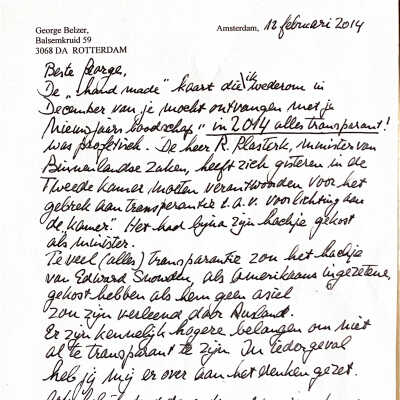 George Belzer,
Balsemkruid 59
3068 DA ROTTERDAM
Amsterdam, 12 februari 2014
Beste George,
De "hand made" kaart die ik wederom in
December van je mocht ontvangen met je
Nieuwjaars boodschap "in 2014 alles transparant!
was profetisch. De heer R. Plasterk, minister van
Binnenlandse Zaken, heeft zich gisteren in de
Tweede Kamer moeten verantwoorden voor het
gebrek aan transparantie t.a.v. voorlichting aan
de kamer". Het had bijna zijn hachje gekost
als minister.
Te veel (alles) transparantie zou het hachje
van Edward Snowden, als Amerikaans ingezetene,
gekost hebben als hem geen asiel
zou zijn verleend door Rusland.
Er zijn kennelijk hogere belangen om niet
al te transparant te zijn. In iedergeval
heb jij mij er over aan het denken gezet.